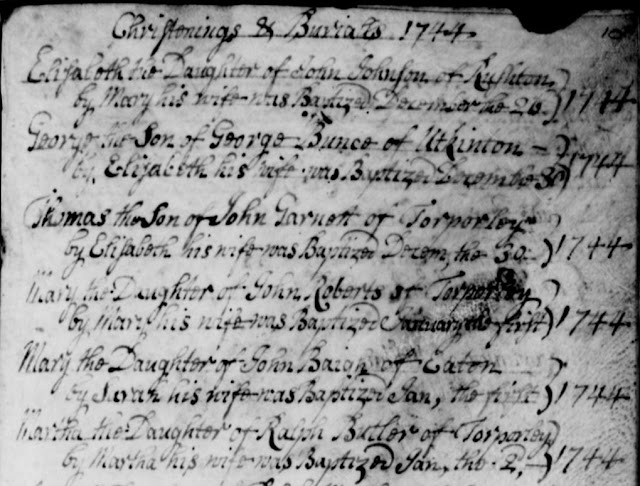 Christenings & Burials 1744
Elisabeth the Daughter of John Johnson of Rushton
by Mary his wife was Baptized December the 26. 1744
George the Son of George Bunce of Utkinton
by Elizabeth his wife was Baptized Decembe 30 1744
Thomas the Son of John Garnett of Torporley
by Elisabeth his wife was Baptized Decem, the 30. 1744
Mary the Daughter of John Roberts of Torporley
by Mary his wife was Baptized January the first 1744
Mary the Daughter of John Baigh of Eaton
by Sarah his wife was Baptized Jan, the first 1744
Martha the Daughter of Ralph Butler of Torporley
by Martha his wife was Baptized Jan, the 2, 1744